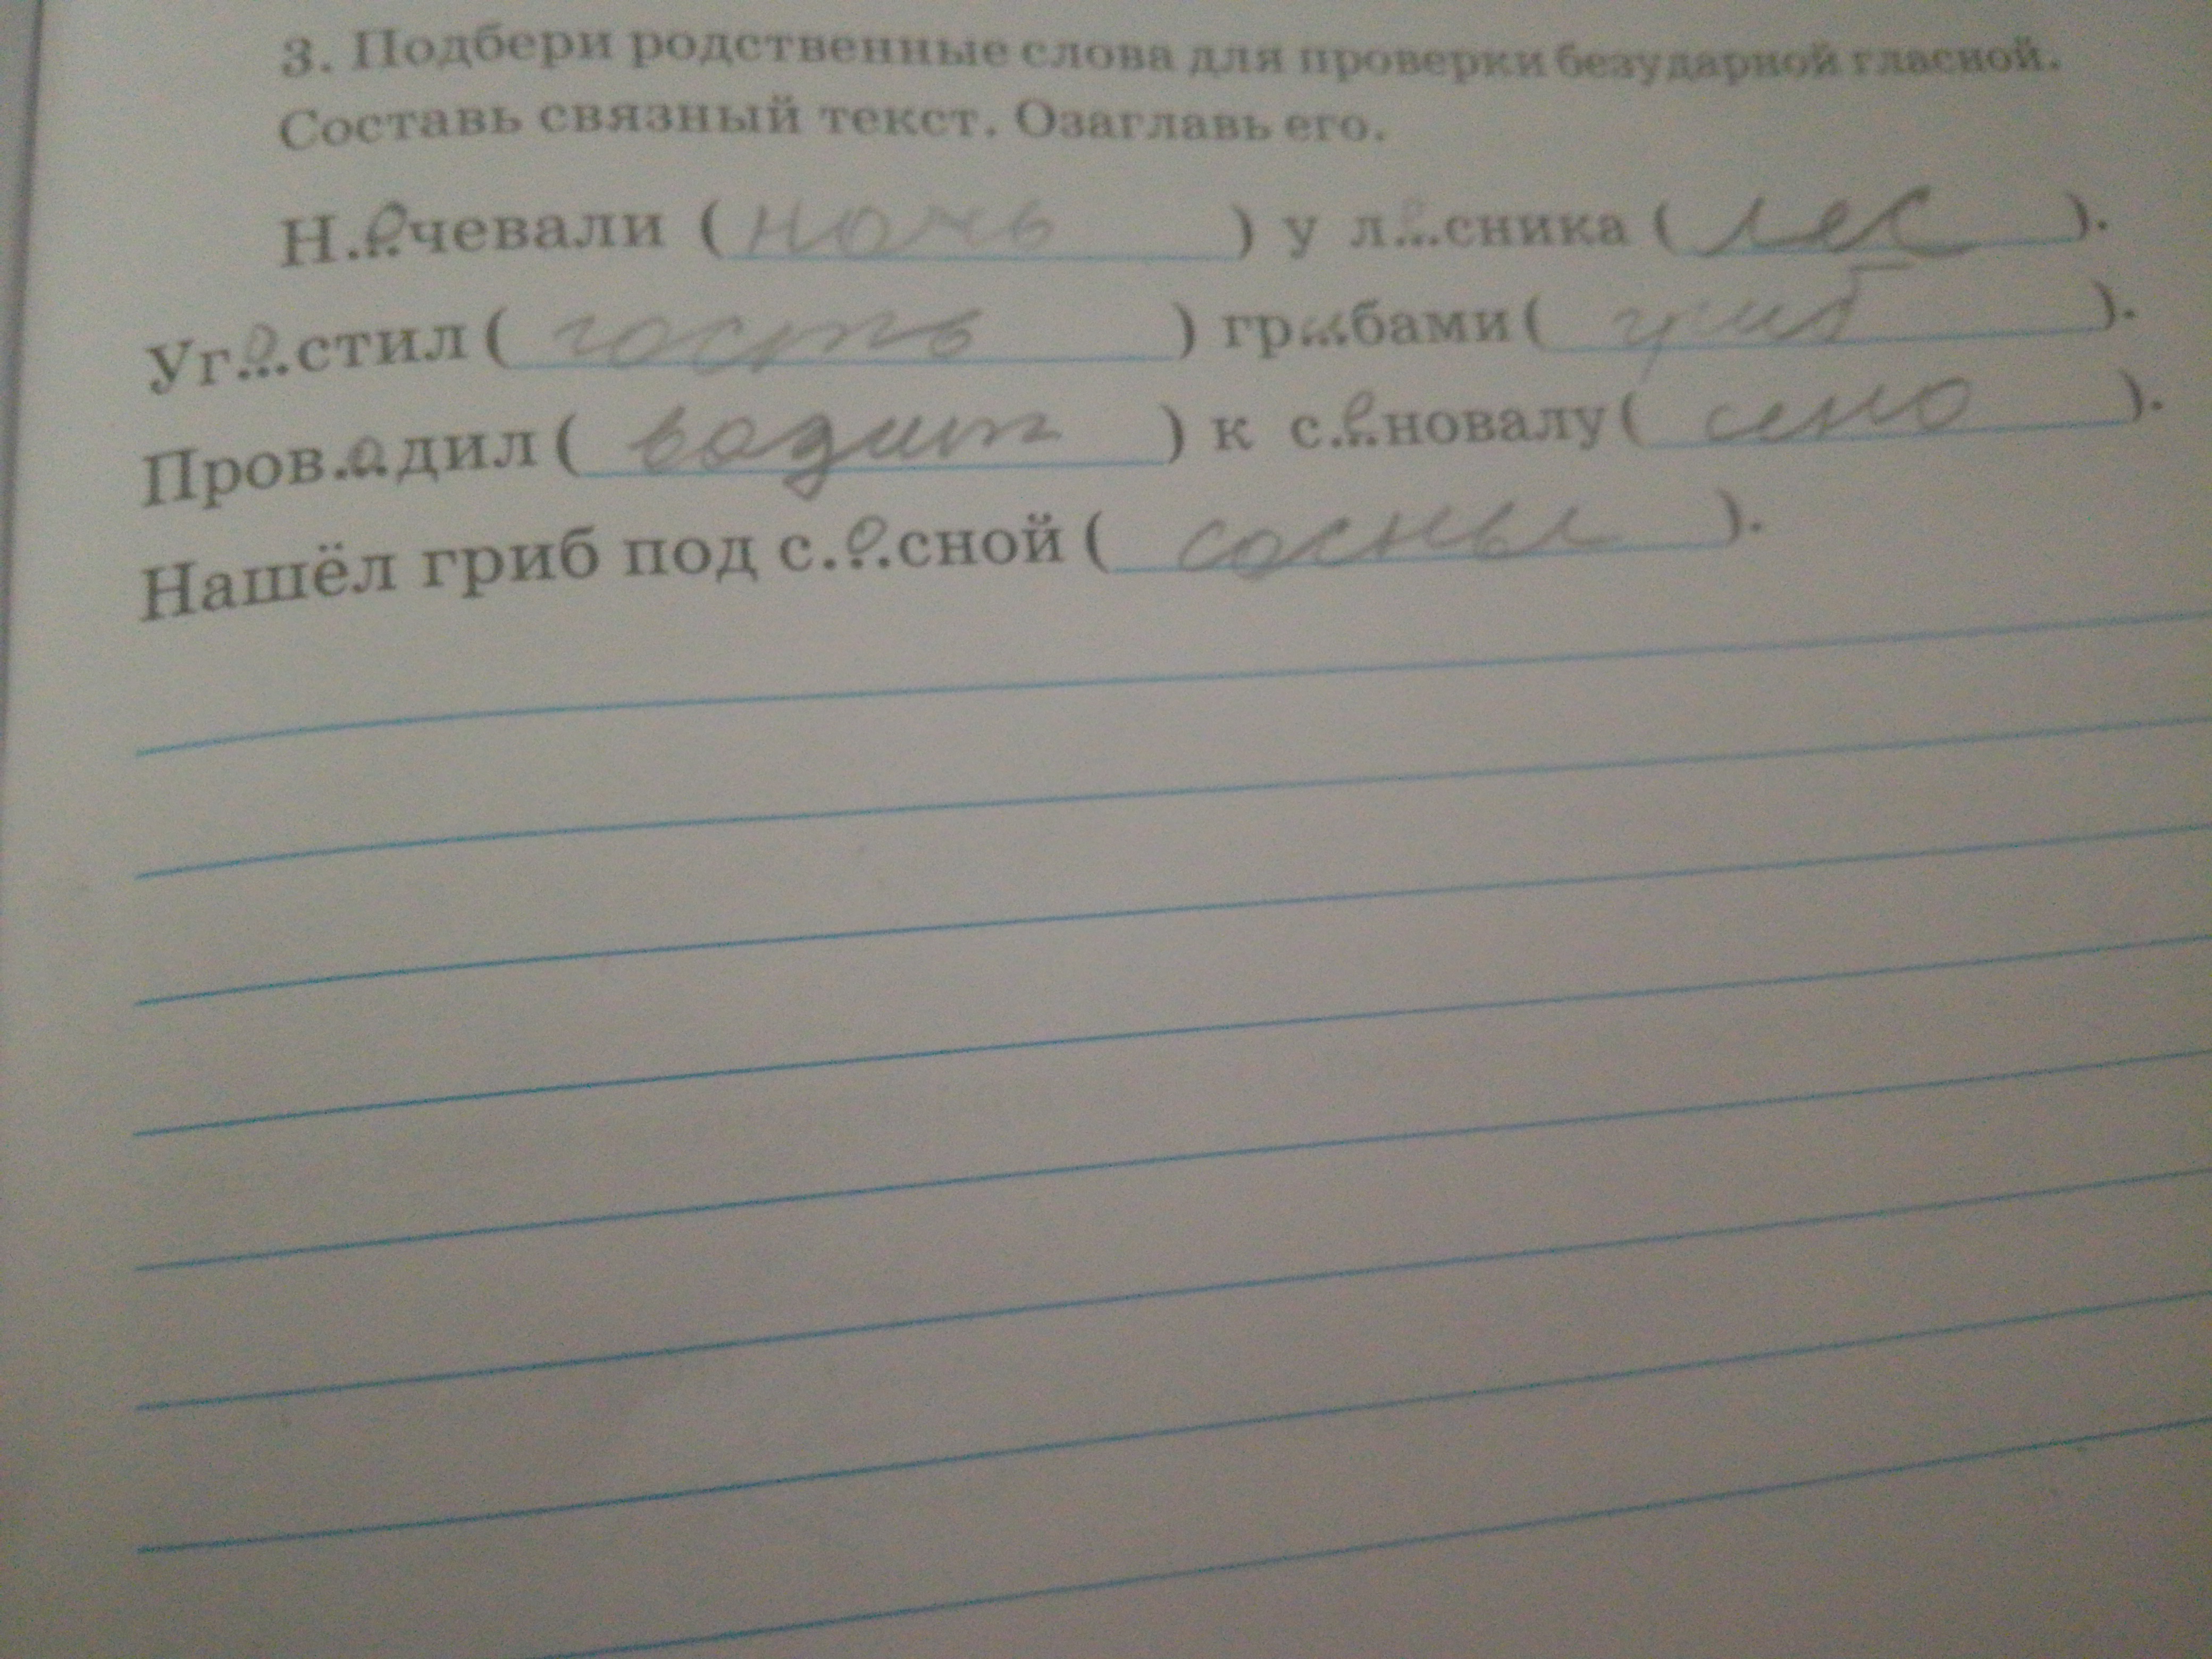 3. Подбери родственные слова для проверки безударной гласной.
Составь связный текст. Озаглавь его.
Н.о.чевали ( ночь ) у л.е.сника ( лес ).
Уг.о.стил ( гость ) гр.и.бами ( гриб ).
Пров.о.дил ( водит ) к с.е.новалу ( сено ).
Нашёл гриб под с.о.сной ( сосны ).